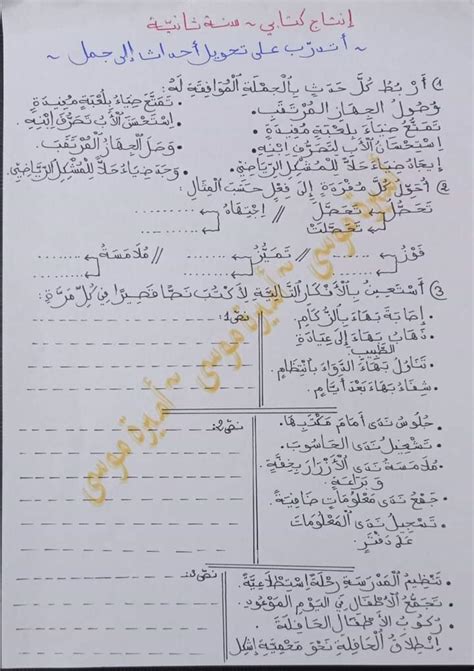 إنتاج كتابي ~ سنة ثانية
~ أتدرّب على تحويل أحداث إلى جمل ~
1) أَرْبُطُ كُلَّ حَدَثٍ بِالْجُمْلَةِ الْمُوَافِقَةِ لَهُ:
وُصُولُ الْجِهَازِ الْمُرْتَقَبِ. • تَمَتَّعَ ضِيَاءُ بِلُعْبَةٍ مُفِيدَةٍ.
تَمَتُّعُ ضِيَاءَ بِلُعْبَةٍ مُفِيدَةٍ • اِسْتَحْسَنَ الْأَبُ تَصَرُّفَ ابْنِهِ.
اِسْتِحْسَانُ الْأَبِ لِتَصَرُّفِ ابْنِهِ • وَصَلَ الْجِهَازُ الْمُرْتَقَبُ.
إِيجَادُ ضِيَاءَ حَلًّا لِلْمُشْكِلِ الرِّيَاضِيِّ. • وَجَدَ ضِيَاءُ حَلًّا لِلْمُشْكِلِ الرِّيَاضِيِّ.
2) أُحَوِّلُ كُلَّ مُفْرَدَةٍ إِلَى فِعْلٍ حَسَبَ الْمِثَالِ:
تَحَصُّل تَحَصَّلَ // اِنْتِبَاهُ
تَحَصَّلَتْ
فَوْزُ // تَمَيُّزُ // مُلَامَسَةُ
3) أَسْتَعِينُ بِالْأَفْكَارِ التَّالِيَةِ لِأَكْتُبَ نَصًّا قَصِيرًا فِي كُلِّ مَرَّةٍ:
• إِصَابَةُ بَهَاءَ بِالزُّكَامِ. نصّ1:
• ذَهَابُ بَهَاءَ إِلَى عِيَادَةِ
الطَّبِيبِ.
• تَنَاوُلُ بَهَاءَ الدَّوَاءَ بِانْتِظَامٍ.
• شِفَاءُ بَهَاءَ بَعْدَ أَيَّامٍ.
• جُلُوسُ نَدَى أَمَامَ مَكْتَبِهَا. نصّ2:
• تَشْغِيلُ نَدَى الْحَاسُوبَ.
• مُلَامَسَةُ نَدَى الْأَزْرَارَ بِخِفَّةٍ
وَ بَرَاعَةٍ.
• جَمْعُ نَدَى مَعْلُومَاتٍ ضَافِيَةً
• تَسْجِيلُ نَدَى الْمَعْلُومَاتِ
عَلَى دَفْتَرٍ.
• تَنْظِيمُ الْمَدْرَسَةِ رِحْلَةً اِسْتِطْلَاعِيَّةً نصّ3:
• تَجَمُّعُ الْأَطْفَالِ فِي الْيَوْمِ الْمَوْعُودِ.
• رُكُوبُ الْأَطْفَالِ الْحَافِلَةَ.
• اِنْطِلَاقُ الْحَافِلَةِ نَحْوَ مَحْمِيَّةِ إِشْكِل
أميرة موسى ~ أميرة موسى ~